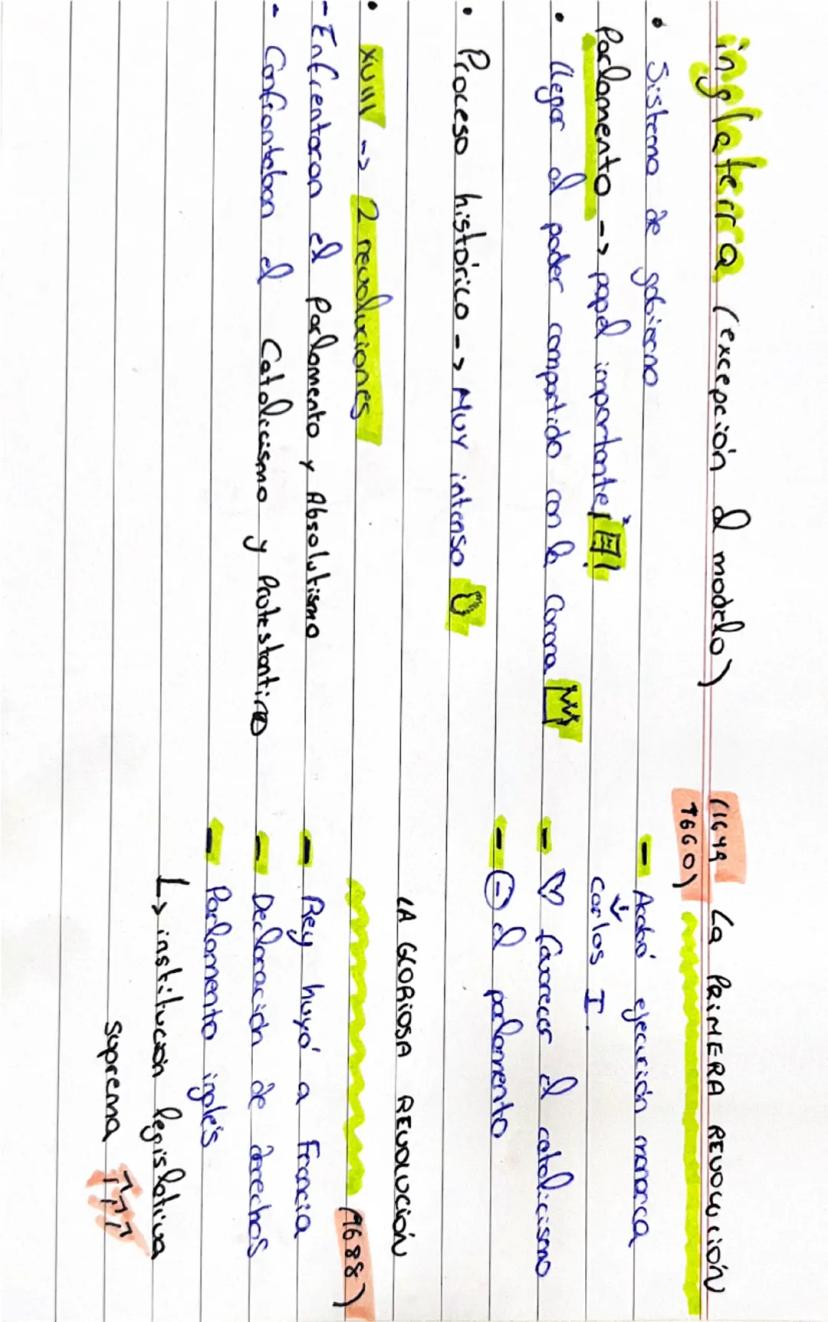 inglaterra (excepción al modelo)
• Sistema de gobierno
Parlamento -> papel importante
• llegar al poder compartido con la Corona
• Proceso histórico -> MUY intenso
• XVIII -> 2 revoluciones
- Enfrentaron el parlamento y Absolutismo
- Confrontaban el Catolicismo y Protestanti
(1649
1660) La PRIMERA REVOLUCIÓN
- Acabó ejecución monarca
Carlos I.
- ♡ favorecer el catolicismo
- ⊖ el parlamento
LA GLORIOSA REVOLUCIÓN
(1688)
- Rey huyó a Francia
- Declaración de derechos
- Parlamento inglés
↳ institución legislativa
suprema ↑↑↑